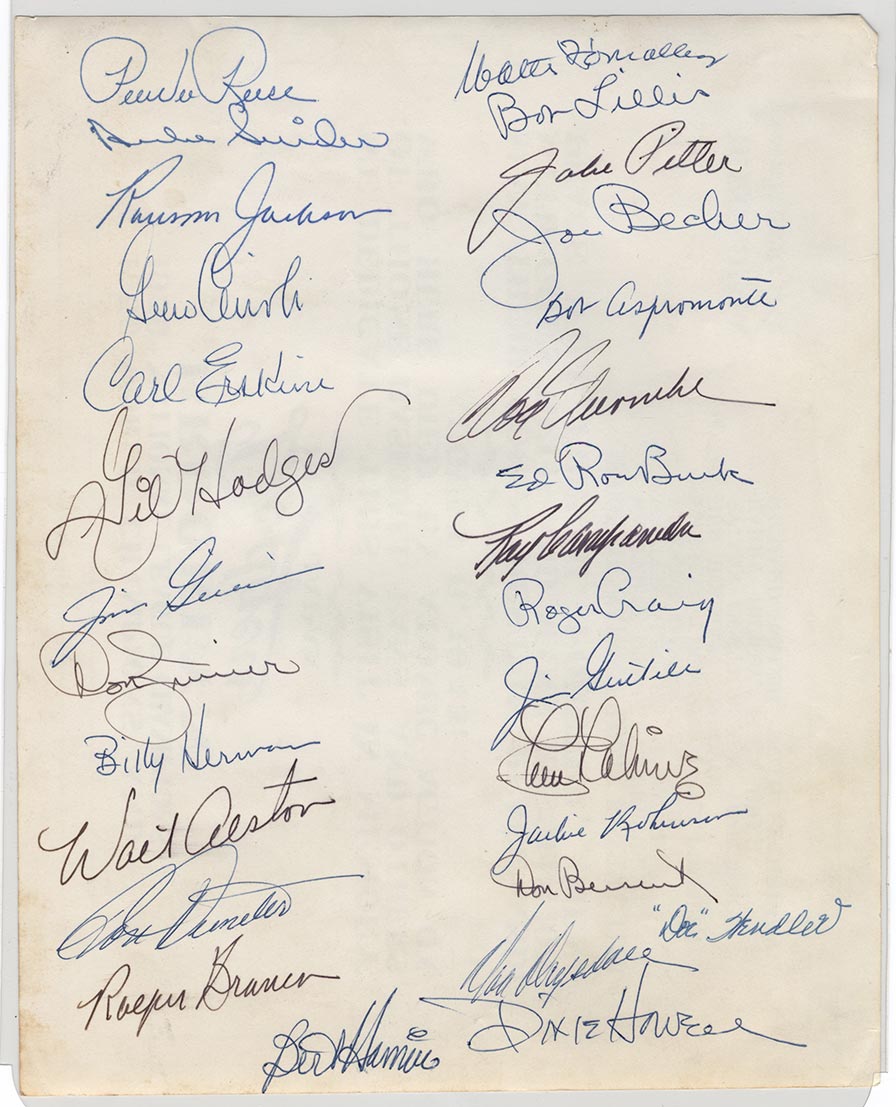 PeeWee Reese
Duke Snider
Ransom Jackson
Gino Cimoli
Carl Erskine
Gil Hodges
Jim
Don Zimmer
Billy Herman
Walt Alston
Don Demeter
Ralph Branca
Bert Hamric
Walter F O'Malley
Bob Lillis
Jake Pitler
Joe Becker
Bob Aspromonte
Don Newcombe
Ed Roebuck
Roy Campanella
Roger Craig
Jim Gentile
Jackie Robinson
Don Bessent
"Doc" Wendler
Don Drysdale
Dixie Howell